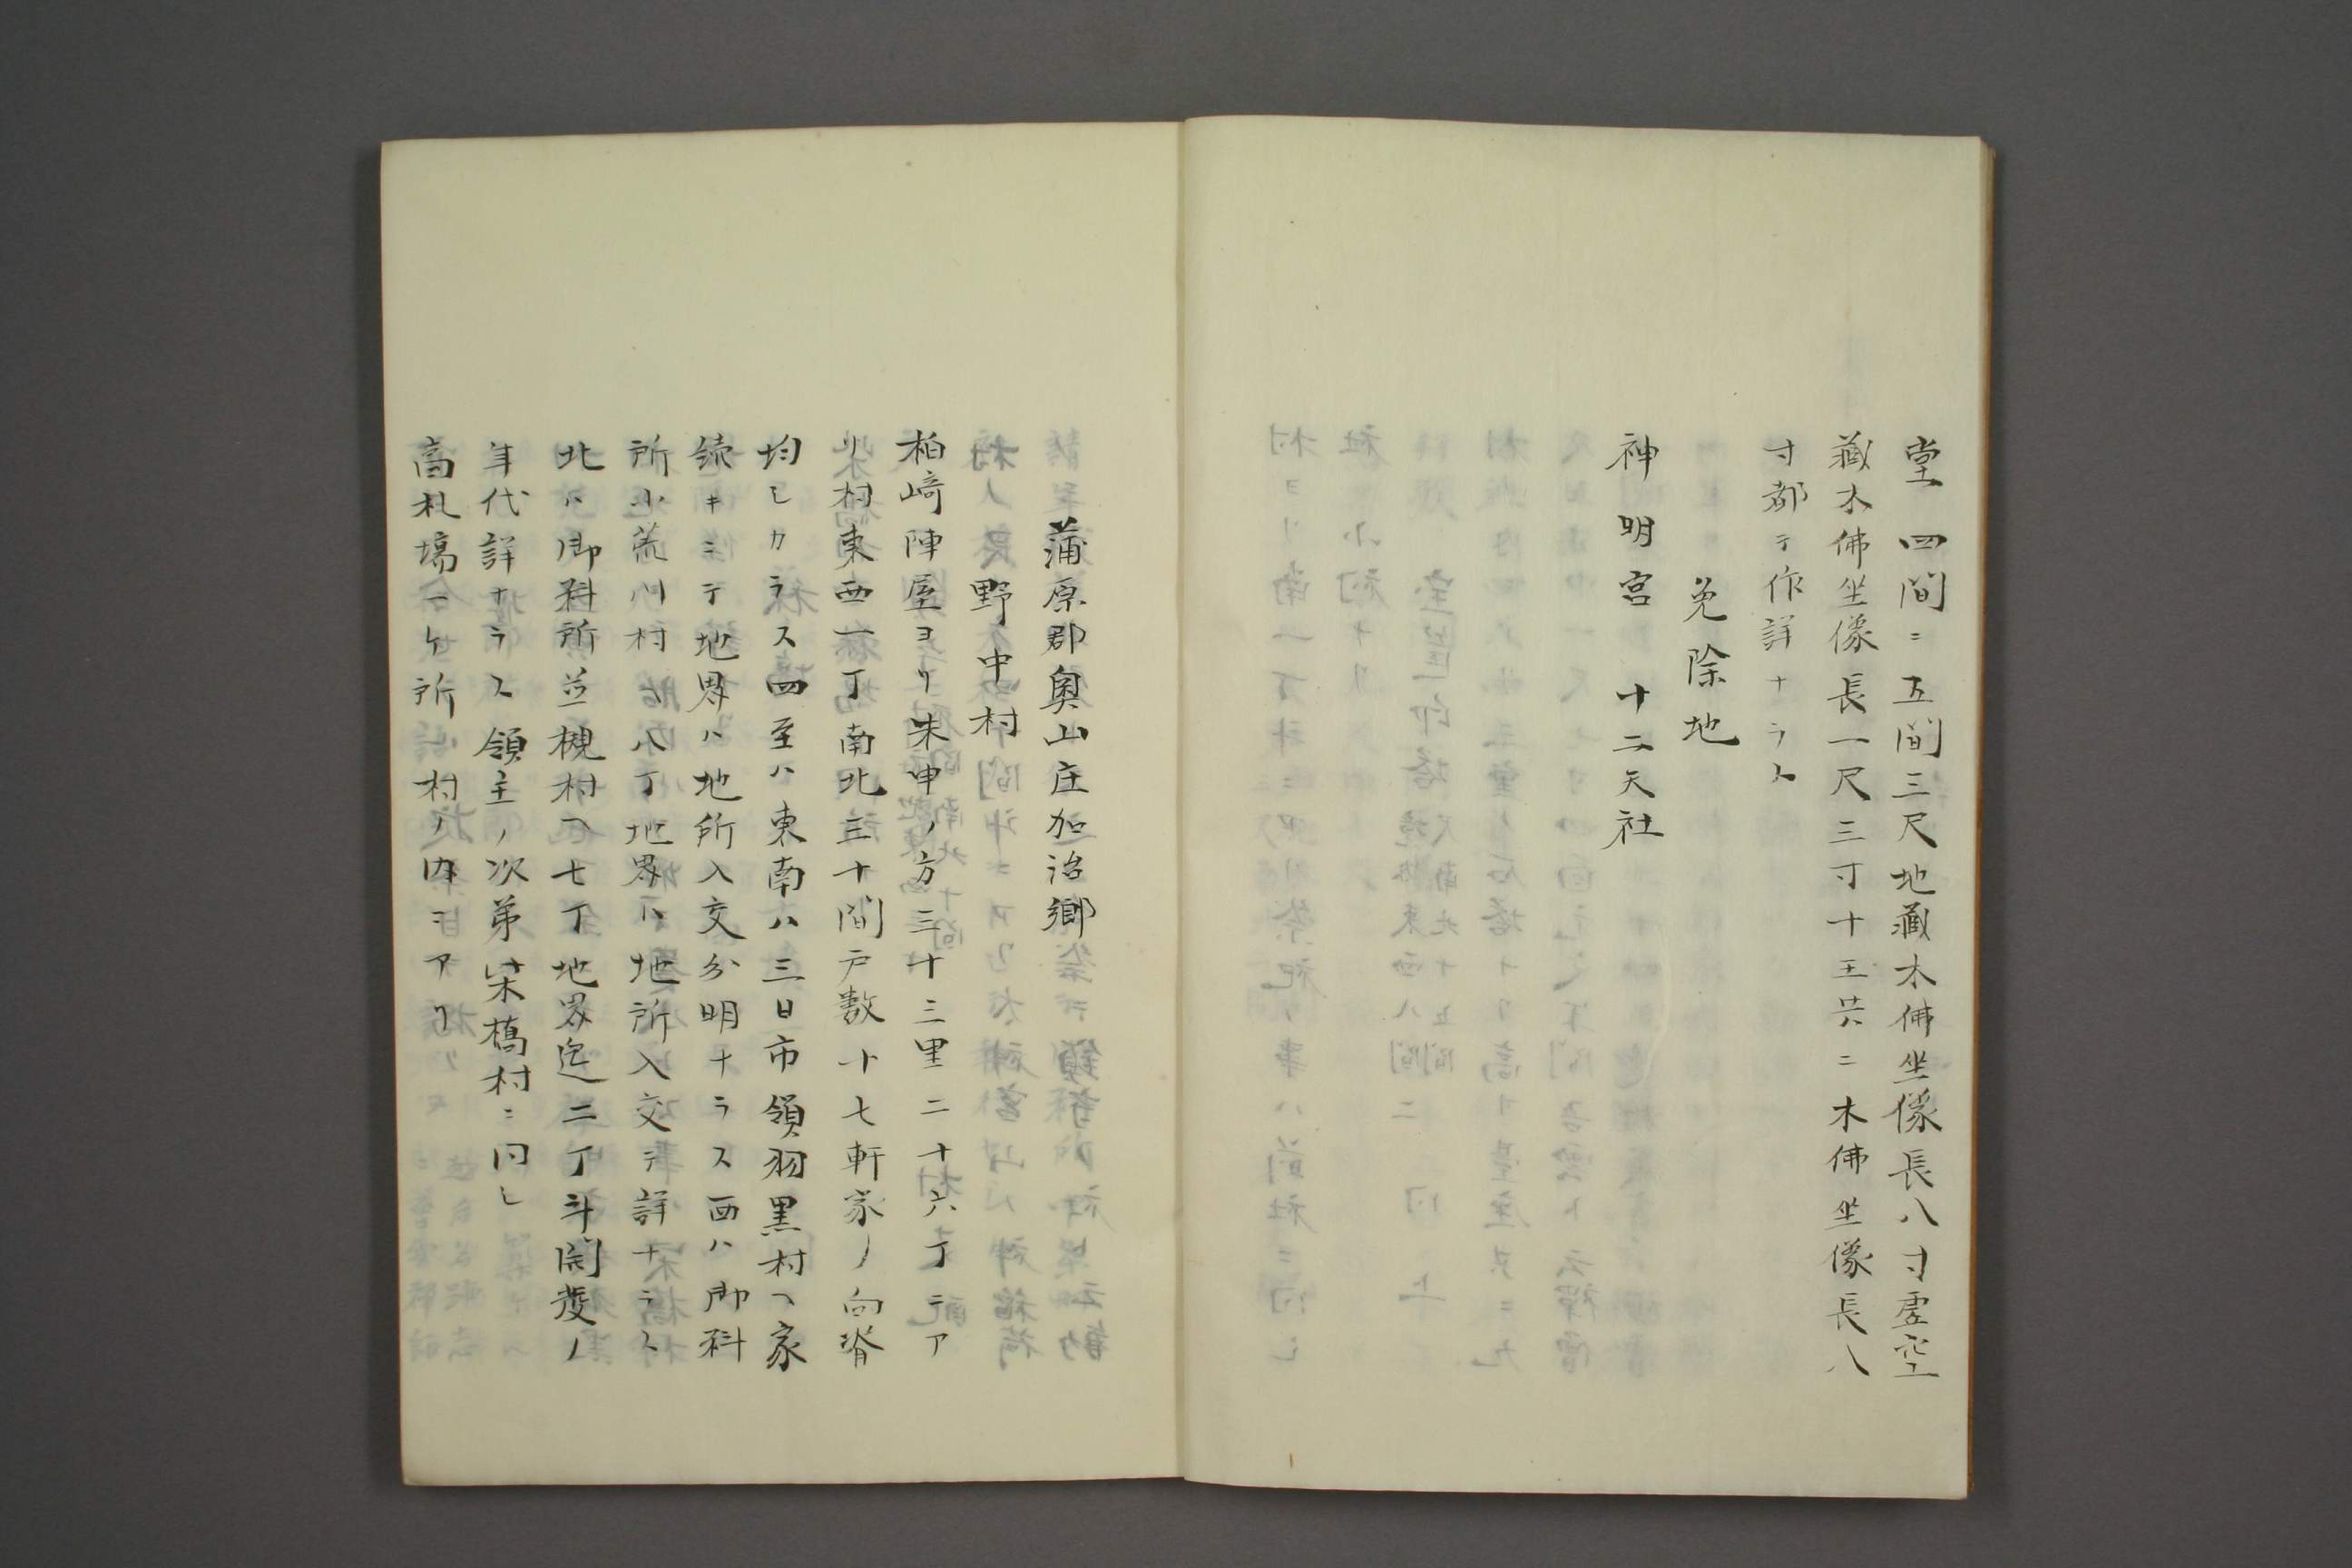 堂四間ニ五間三尺地藏木佛坐像長八寸虚空
藏木佛坐像長一尺三寸十王共ニ木佛坐像長八
寸都テ作詳ナラス
免除地
神明宮　十二天社
蒲原郡奥山庄加治郷
野中村
柏﨑陣屋ヨリ未申ノ方三十三里二十六丁テア
リ村東西一丁南北三十間戸数十七軒家ノ向背
均シカラス四至ハ東南ハ三日市領羽黒村ヘ家
続キニテ地界ハ地所入交分明ナラス西ハ御料
所小荒川村ヘ八丁地界ハ地所入交テ詳ナラス
北ハ御料所並槻村ヘ七丁地界迄二丁斗開發ノ
年代詳ナラス領主ノ次第柴橋村ニ同シ
高札場一ケ所村ノ内ニアリ